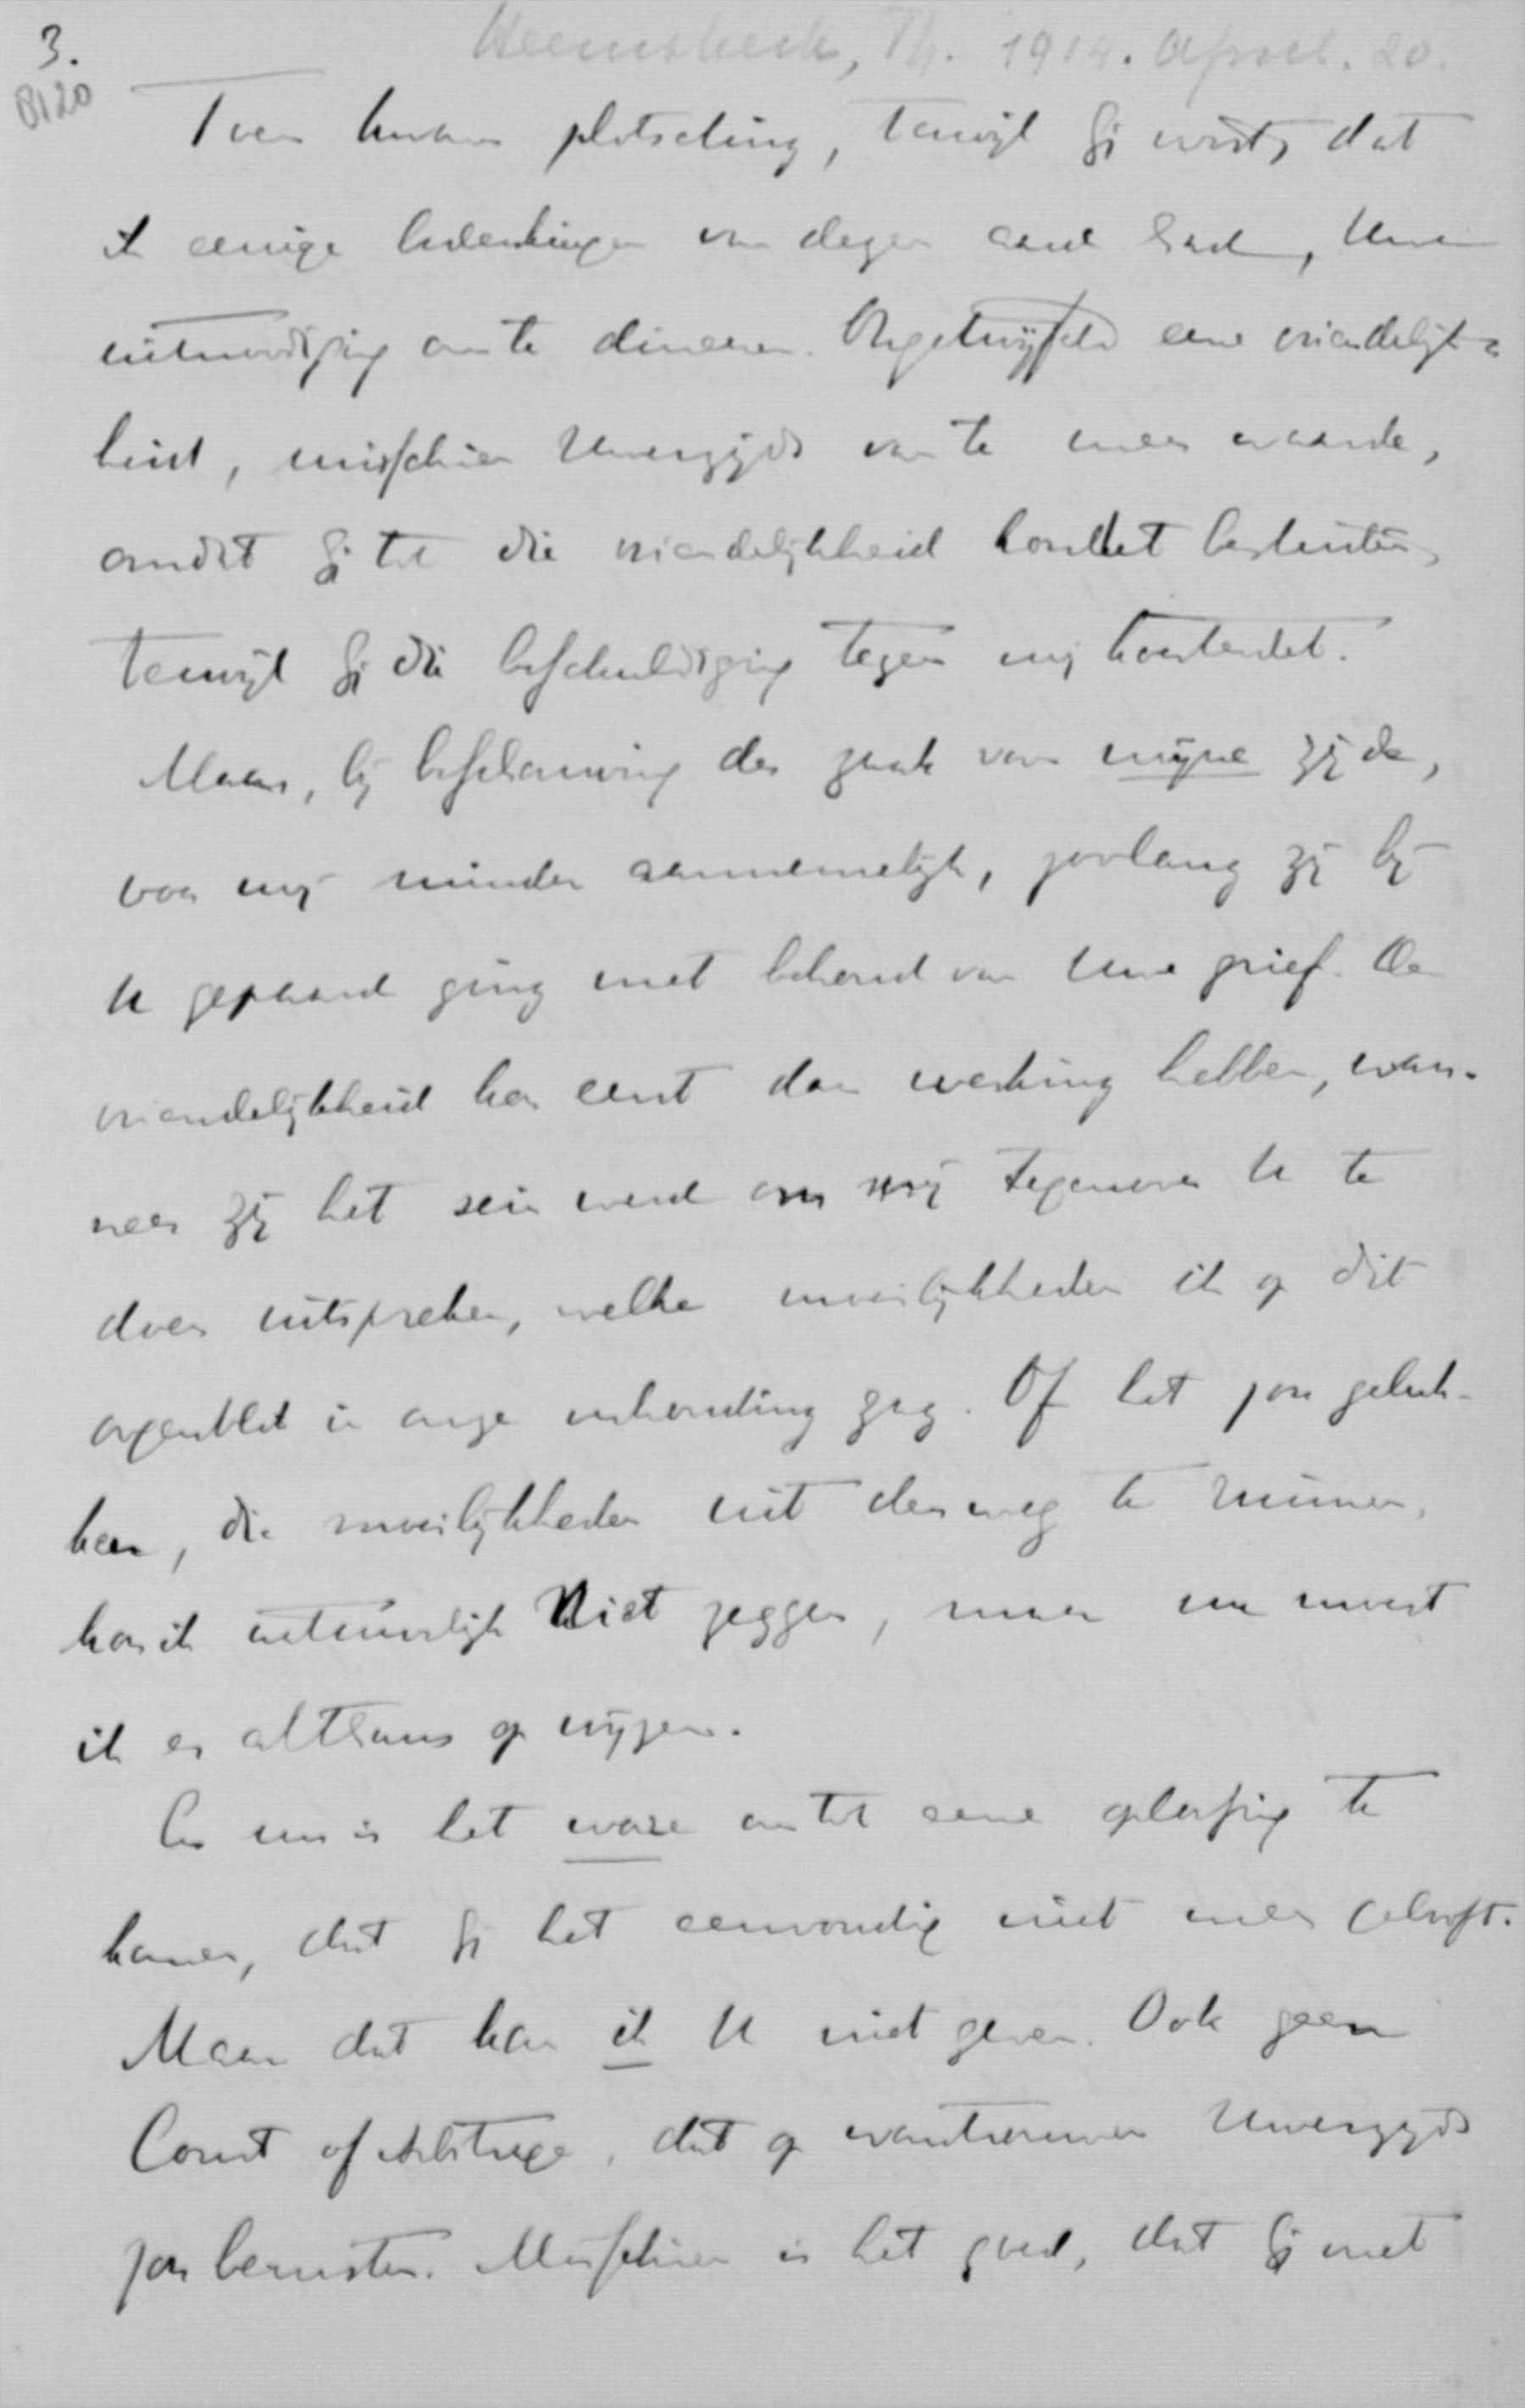 3.
B120
Heemskerck, Th. 1914. April. 20.
Toen kwam plotseling, terwijl gij wist, dat
ik eenige bedenkingen van dezen aard had, Uwe
uitnoodiging om te dineeren. Ongetwijfeld eene vriendelijk=
heid, misschien Uwerzijds van te meer waarde,
omdat gij tot die vriendelijkheid kondet besluiten,
terwijl gij die beschuldiging tegen mij koesterdet.
Maar, bij beschouwing der zaak van mijne zijde,
voor mij minder aannemelijk, zoolang zij bij
U gepaard ging met behoud van Uwe grief. De
vriendelijkheid kon eerst dan werking hebben, wan-
neer zij het sein werd om mij tegenover U te
doen uitspreken, welke moeilijkheden ik op dit
oogenblik in onze verhouding zag. Of het zou geluk-
ken, die moeilijkheden uit den weg te ruimen,
kon ik natuurlijk niet zeggen, maar nu moest
ik er althans op wijzen.
En nu is het ware om tot eene oplossing te
komen, dat gij het eenvoudig niet meer gelooft.
Maar dat kan ik U niet geven. Ook geen
Court of Arbitrage, dat op wantrouwen Uwerzijds
zou berusten. Misschien is het goed, dat gij met